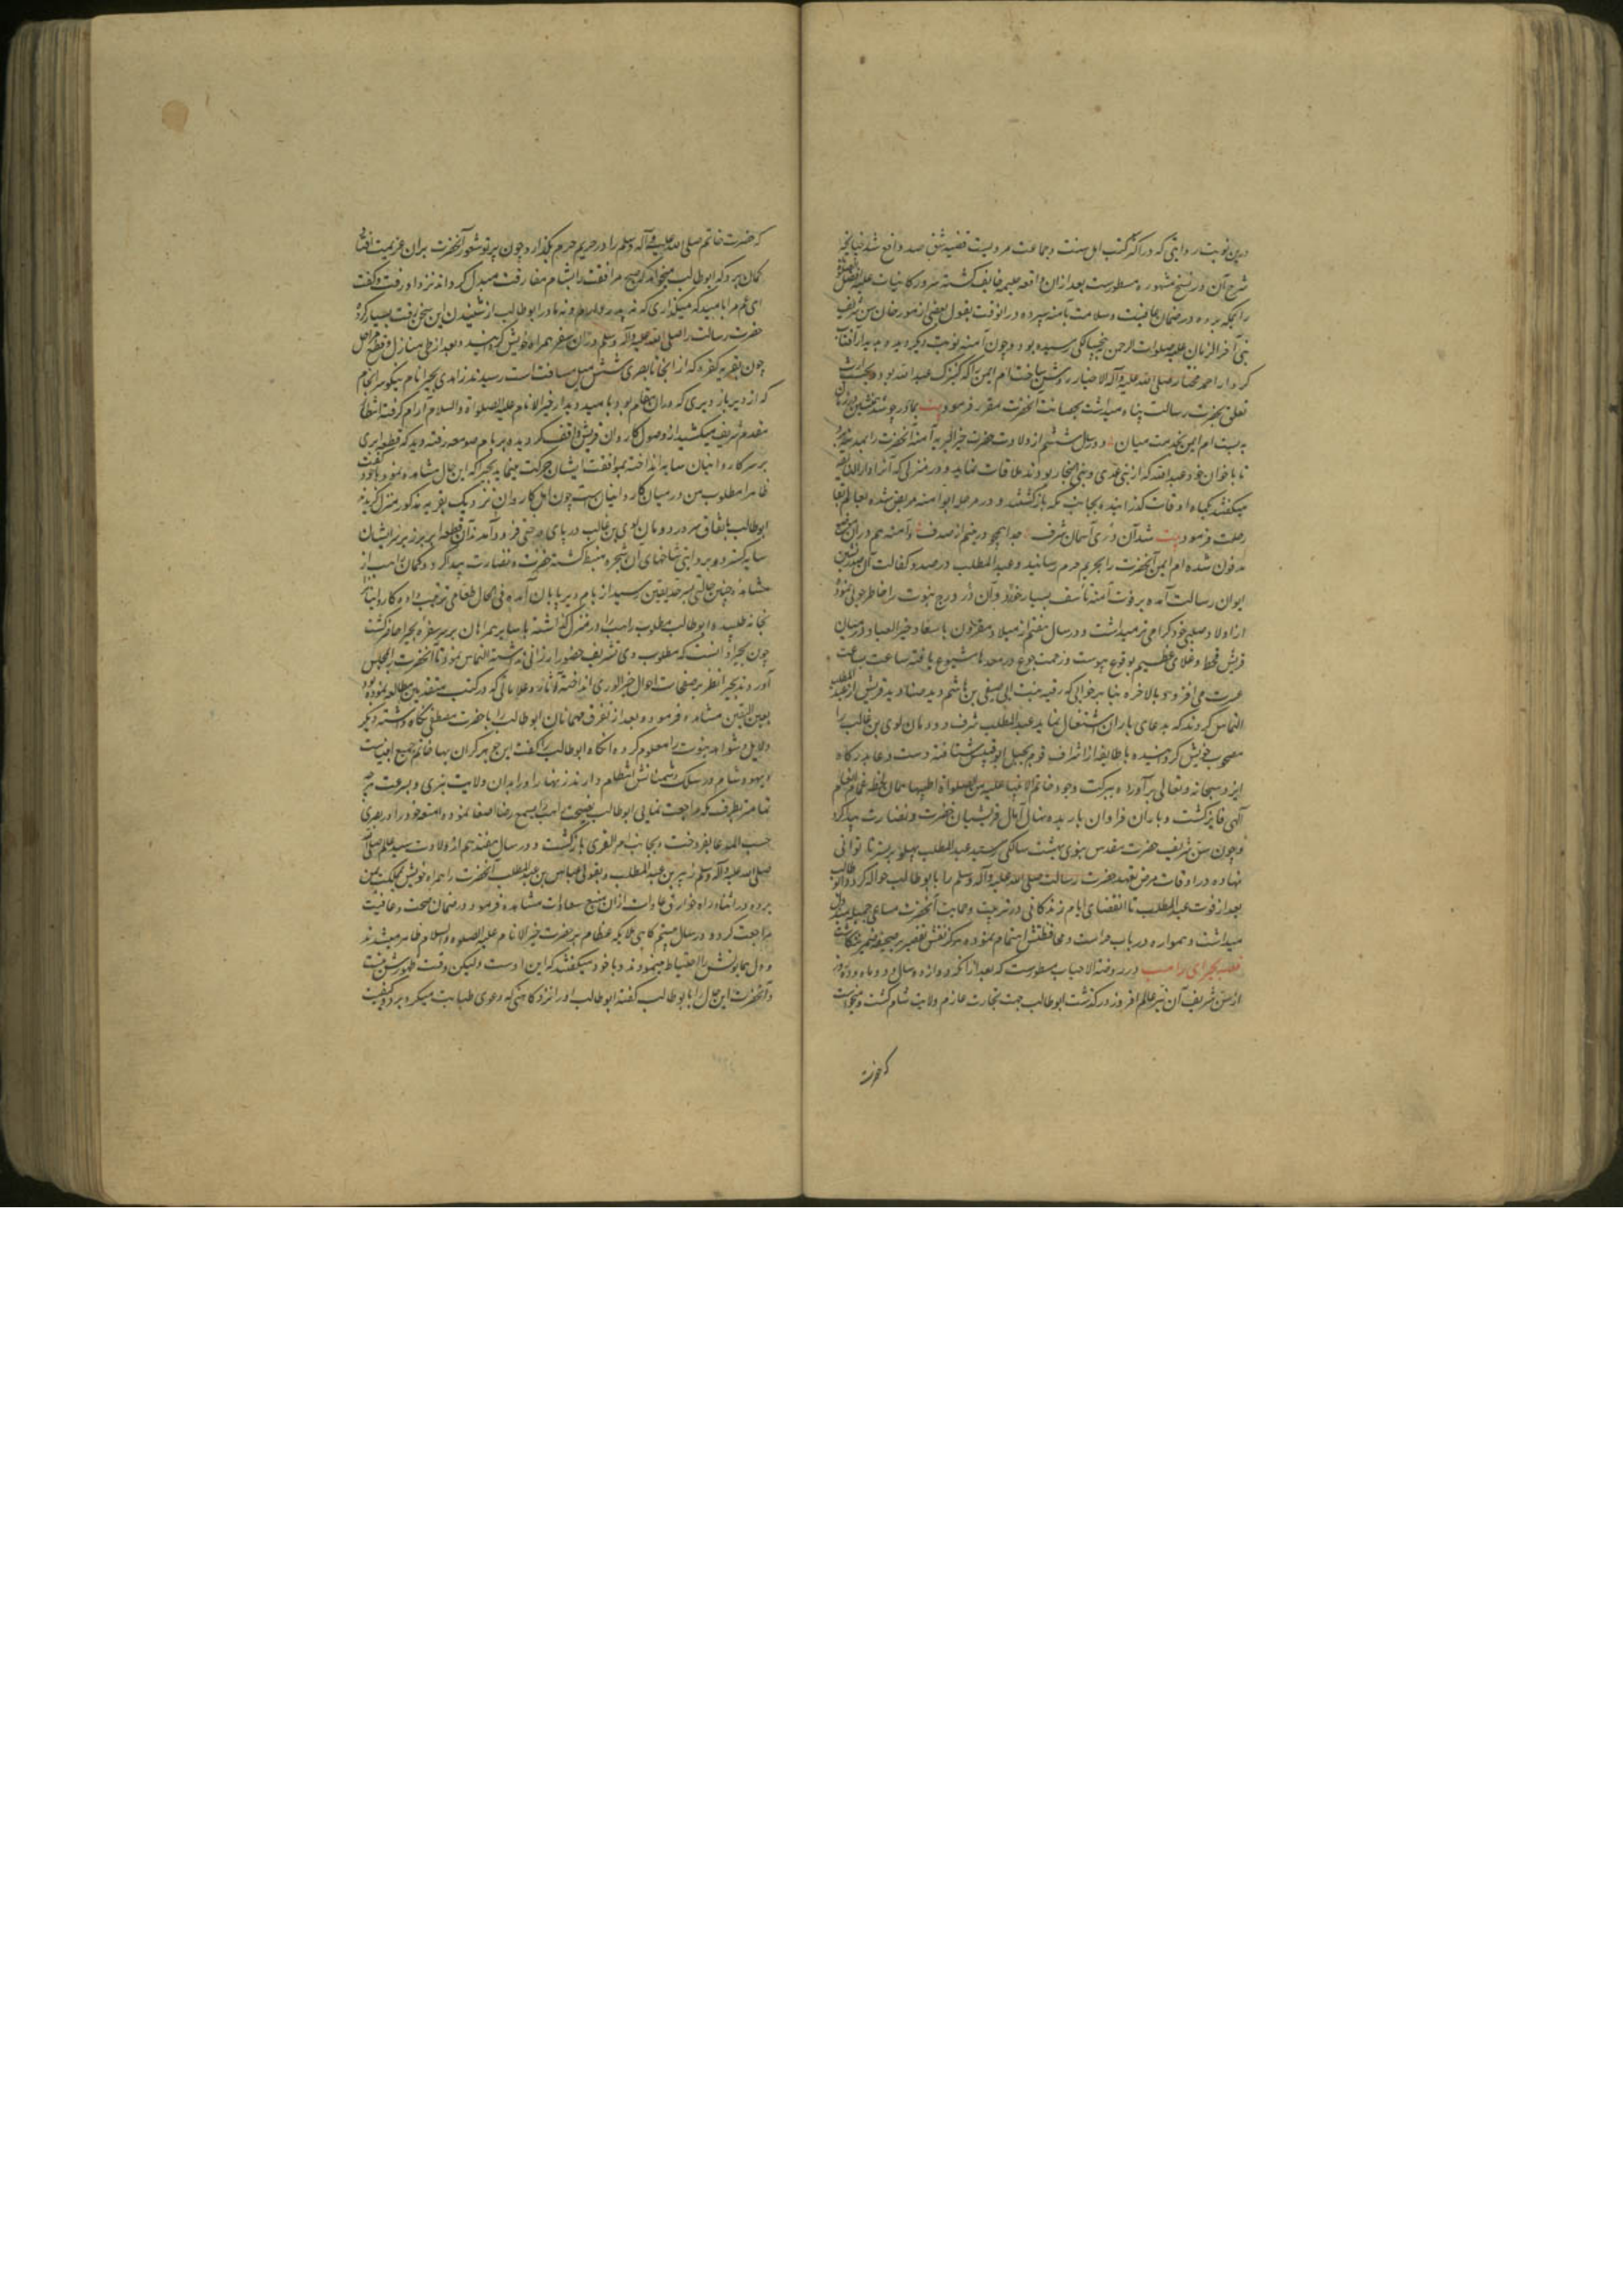 درین نوبت بروایتی که در اکثر کتب اهل سنت و جماعت مرویست قضیه شق صدر واقع شد چنانچه
شرح آن در نسخ مشهوره مسطورست بعد از ان واقعه حلیمه خایف کشته سرور کاینات علیه افضل الصلوة
را بمکه برده در ضمان عافیت و سلامت بآمنه سپرده و در انوقت بقول بعضی از مورخان سن شریف
نبی آخر الزمان علیه صلوات الرحمن به پنجسالکی رسیده بود و چون آمنه نوبت دیکر دیده بدیدار آفتاب
کردار احمد مختار صلی الله علیه و آله الاخیار روشن ساخت ام ایمن را که کنیزک عبد الله بود و بحسب ارث
تعلق بحضرت رسالت پناه میداشت بحضانت آنحضرت مقرر فرمود بیت
به بست ام ایمن بخدمت میان و در سال ششم از ولادت حضرت خیر البریه آمنه آنحضرت را بمدینه برد
تا با خوان خود عبد الله که از بنی عدی و بنی النجار بودند ملاقات نماید و در منزلی که آنرا دار النابغه
میکفتند یکماه اوقات کذرانیده بجانب مکه بازکشتند و در مرحله ابوا آمنه مریض شده بعالم بقا
رحلت فرمود بیت شد آن دری آسمان شرف جدا همچو در یتیم از صدف و آمنه هم در ان موضع
مدفون شده ام ایمن آنحضرت را بحریم حرم رسانید و عبد المطلب در صدد کفالت آن صدرنشین
ایوان رسالت آمده بر فوت آمنه تأسف بسیار خورد و آن در درج نبوت را خاطرجویی نمود
از اولاد صلبی خود کرامی تر میداشت و در سال هفتم از میلاد مقرون باسعاد خیر العباد در میان
قریش قحط و غلای عظیم بوقوع پیوست و زحمت جوع در معدها شیوع یافته ساعت بساعت
عسرت می افزود و بالاخره بنا بر خوابی که رقیه بنت ابی صیفی بن هاشم دید صنادید قریش از عبد المطلب
التماس کردند که بدعای باران اشتغال نماید عبد المطلب شرف دودمان لوی بن غالب را
مصحوب خویش کردانیده با طایفه از اشراف قوم بجبل ابو قبیس شتافته دست دعا بدرکاه
ایزد سبحانه و تعالی برآورد و ببرکت وجود خاتم الانبیا علیه من الصلواة اطیبها همان لحظه غمام انعام
آلهی فایز کشت و باران فراوان باریده نهال آمال قرشیان خضرت و نضارت پیدا کرد
و چون سن شریف حضرت مقدس نبوی بهشت سالکی رسید عبد المطلب پهلو بر بستر ناتوانی
نهاده در اوقات مرض تعهد حضرت رسالت صلی الله علیه و آله وسلم را بابو طالب حواله کرد و ابو طالب
بعد از فوت عبد المطلب تا انقضای ایام زندکانی در تربیت و حمایت آنحضرت مساعی جمیله مبذول
میداشت و همواره در باب حراست و محافظتش اهتمام نموده هرکز نقش تقصیر بر صحیفه ضمیر ننکاشت
قصه بحیرای راهب در روضة الاحباب مسطورست که بعد از انکه دوازده سال و دو ماه و ده روز
از سن شریف آن نیر عالم افروز درکذشت ابو طالب جهت تجارت عازم ولایت شام کشت و میخواست
که حضرت
که حضرت خاتم صلی الله علیه و آله وسلم را در حریم حرم بکذارد و چون پرتو شعور آنحضرت بران عزیمت افتاد
کمان برد که ابو طالب میخواهد که صبح مرافقت را بشام مفارقت مبدل کرداند نزد او رفت و کفت
ای عم مرا بامید که میکذاری که نه پدر دارم و نه مادر ابو طالب از شنیدن این سخن رقت بسیار کرده
حضرت رسالت را صلی الله علیه و آله وسلم در آن سفر همراه خویش کردانید و بعد از طی منازل و قطع مراحل
چون بقریه کفره که از انجا تا بصری شش میل مسافتست رسیدند زاهدی بحیرا نام نیکو سرانجام
که از دیر باز در دیری که در ان مقام بود بامید دیدار خیر الانام علیه الصلواة والسلام آرام کرفته انتظار
مقدم شریف میکشید از وصول کاروان قریش واقف کردیده بر بام صومعه رفته دید که قطعه ابری
بر سر کاروانیان سایه انداخته بموافقت ایشان حرکت مینماید بحیرا که این حال مشاهده نمود با خود کفت
ظاهرا مطلوب من در میان کاروانیان است چون اهل کاروان نزدیک بقریه مذکور منزل کزیدند
ابو طالب باتفاق سرور دودمان لوی بن غالب در پای درختی فرود آمدند آن قطعه ابر بر زبر سر ایشان
سایه کسترد و بروایتی شاخهای آن شجره منبسط کشته خضرت و نضارت پیدا کرد و کمان راهب از
مشاهده چنین حالتی بسرحد یقین رسید از بام دیر پایان آمده فی الحال طعامی ترتیب داد و کاروانیان را
بخانه طلبیده ابو طالب مطلوب راهب را در منزل کذاشته با سایر همراهان بر سر سفره بحیرا حاضر کشت
چون بحیرا دانست که مطلوب وی تشریف حضور ارزانی نداشته التماس نمود تا آنحضرت را بمجلس
آوردند بحیرا نظر بر صفحات احوال خیر الوری انداخته آثار و علاماتی که در کتب متقدمین مطالعه نموده بود
بعین الیقین مشاهده فرمود و بعد از تفرق مهمانان ابو طالب را با حضرت مصطفی نکاه داشته دیکر
دلایل و شواهد نبوت را معلوم کرده آنکاه ابو طالب را کفت این جوهر کران بها خاتم جمیع انبیاست
و یهود شام در سلک دشمنانش انتظام دارند زنهار او را بدان ولایت نبری و بسرعت هر چه
تمامتر بطرف مکه مراجعت نمایی ابو طالب نصیحت راهب را بسمع رضا اصغا نموده امتعه خود را در بصری
حسب المدعا بفروخت و بجانب ام القری بازکشت و در سال هفدهم از ولادت سید عالم صلی
صلی الله علیه و آله وسلم زبیر بن عبد المطلب و بقولی عباس بن عبد المطلب آنحضرت را همراه خویش بمملکت یمن
برده در اثناء راه خوارق عادات از ان منبع سعادات مشاهده فرمود و در ضمان صحت و عافیت
مراجعت کرد و در سال بیستم کاهی ملایکه عظام بر حضرت خیر الانام علیه الصلوه والسلام ظاهر میشدند
و دل همایونش را احتیاط مینمودند و با خود میکفتند که این اوست ولیکن وقت ظهورش نیست
و آنحضرت این حال را با ابو طالب کفته ابو طالب او را نزد کاهنی که دعوی طبابت میکرد برد و کیفیت